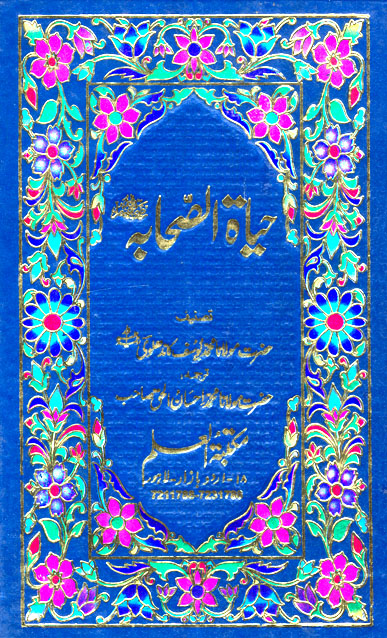 حیاۃ الصحابہ
تصنیف
حضرت مولانا محمد یوسف کاندھلوی
ترجمہ
حضرت مولانا محمد احسان الحق صاحب
مکتبۃ العلم
۱۸ اردو بازار لاہور
7211788-7231788